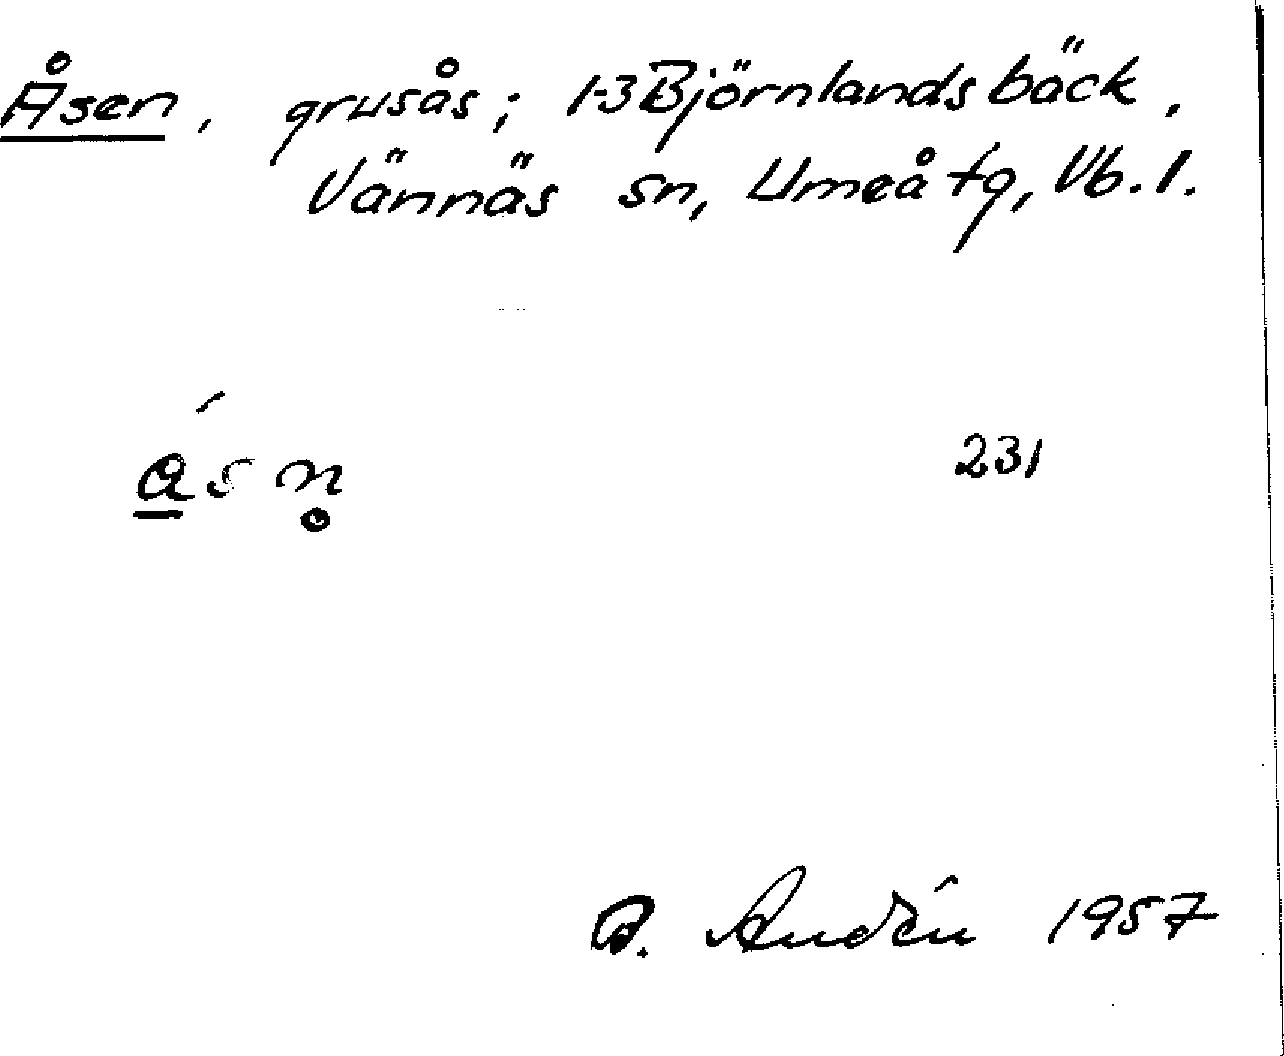 Åsen, grusås; 1-3 Björnlandsbäck,
Vännäs sn, Umeå tg, Vb. l.
á̲sn̥ 231
B. Andén 1957